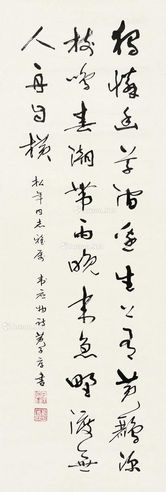 獨憐幽草澗邊生上有黃鸝深
樹鳴春潮帶雨晚來急野渡無
人舟自橫
松年同志雅屬 韋應物詩 書